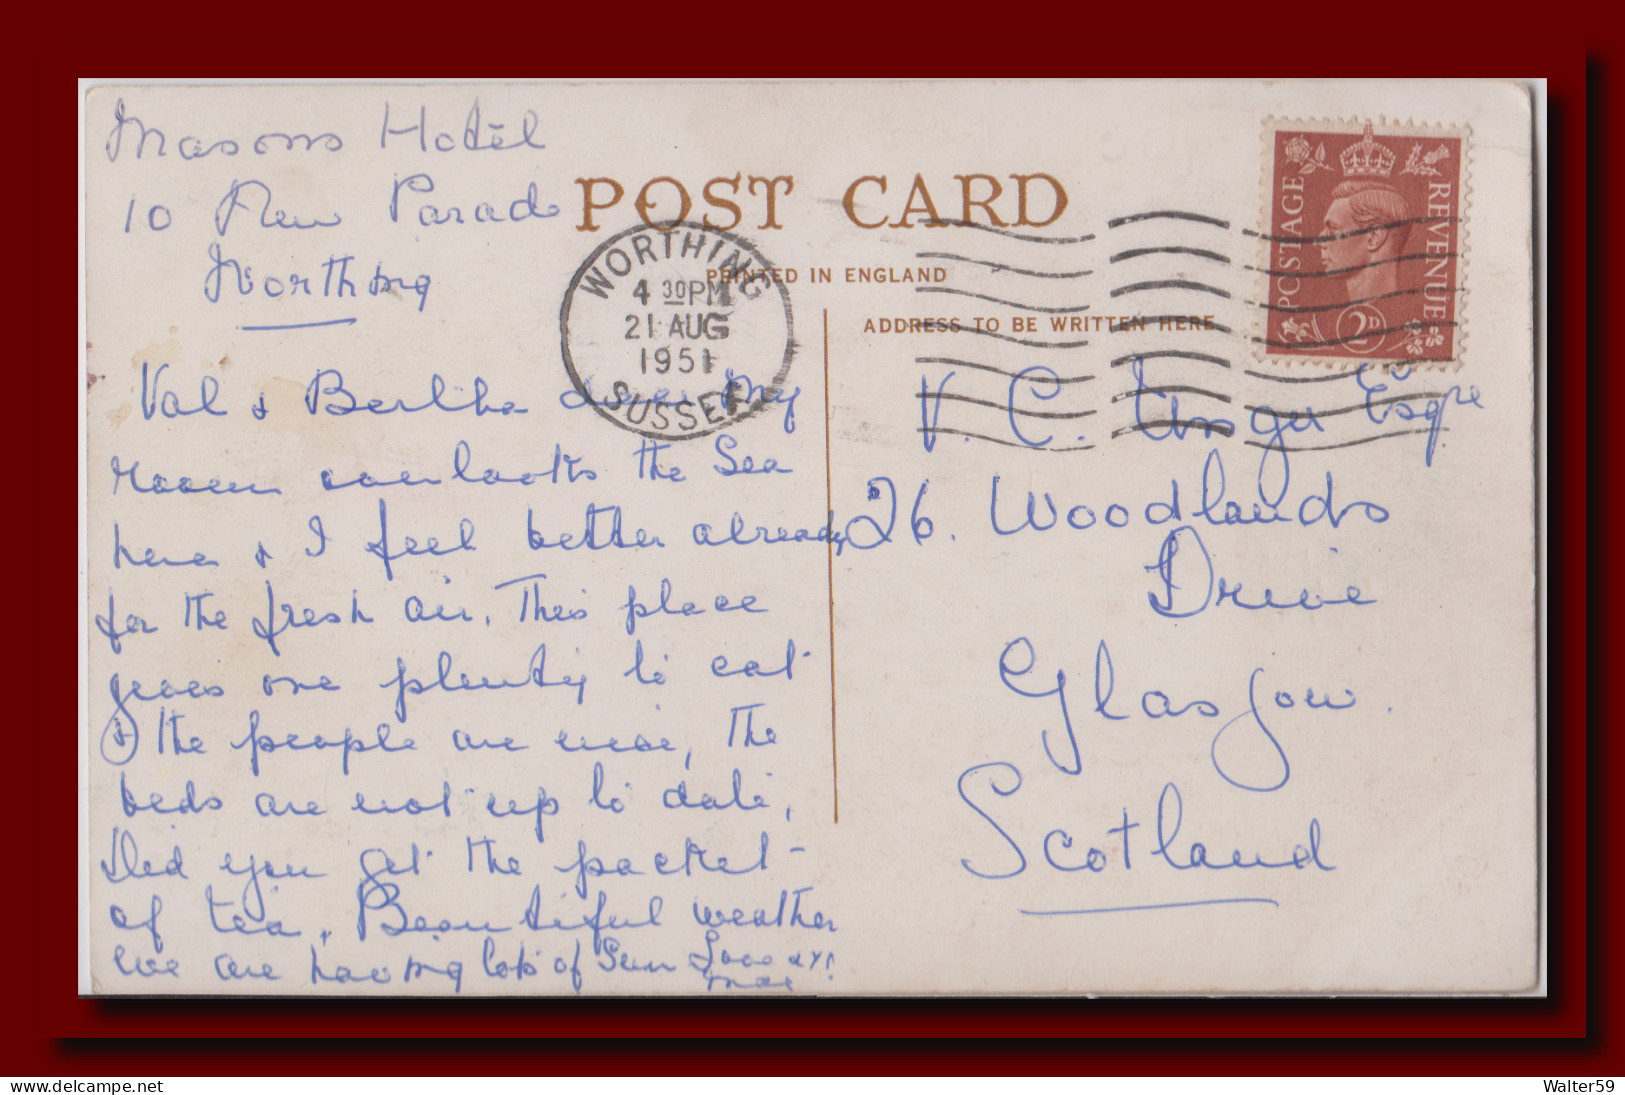 Masons Hotel
10 New Parade
Worthing
POST CARD
PRINTED IN ENGLAND
ADDRESS TO BE WRITTEN HERE
WORTHING
4 30PM
21 AUG
1951
SUSSEX
POSTAGE
REVENUE
2D
Val & Bertha dear My
room overlooks the Sea
here & I feel better already
for the fresh air. This place
gives one plenty to eat
& the people are nice, The
beds are not up to date,
Did you get the packet
of tea. Beautiful weather
we are having lots of Sun Love
V. C. Esqre
26. Woodlands
Drive
Glasgow.
Scotland
delcampe.net
Walter59